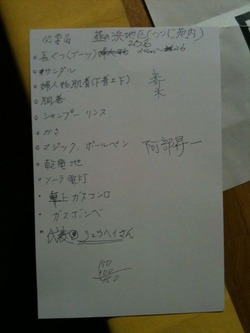 必要品
浜地区(つつじ苑内)
長ぐつ(ブーツ)
サンダル
婦人物肌着(下着上下)
腹巻
シャンプー リンス
かさ
マジック、ボールペン
乾電池
ソーラ電灯
卓上ガスコンロ
ガスボンベ
さん
阿部昇一